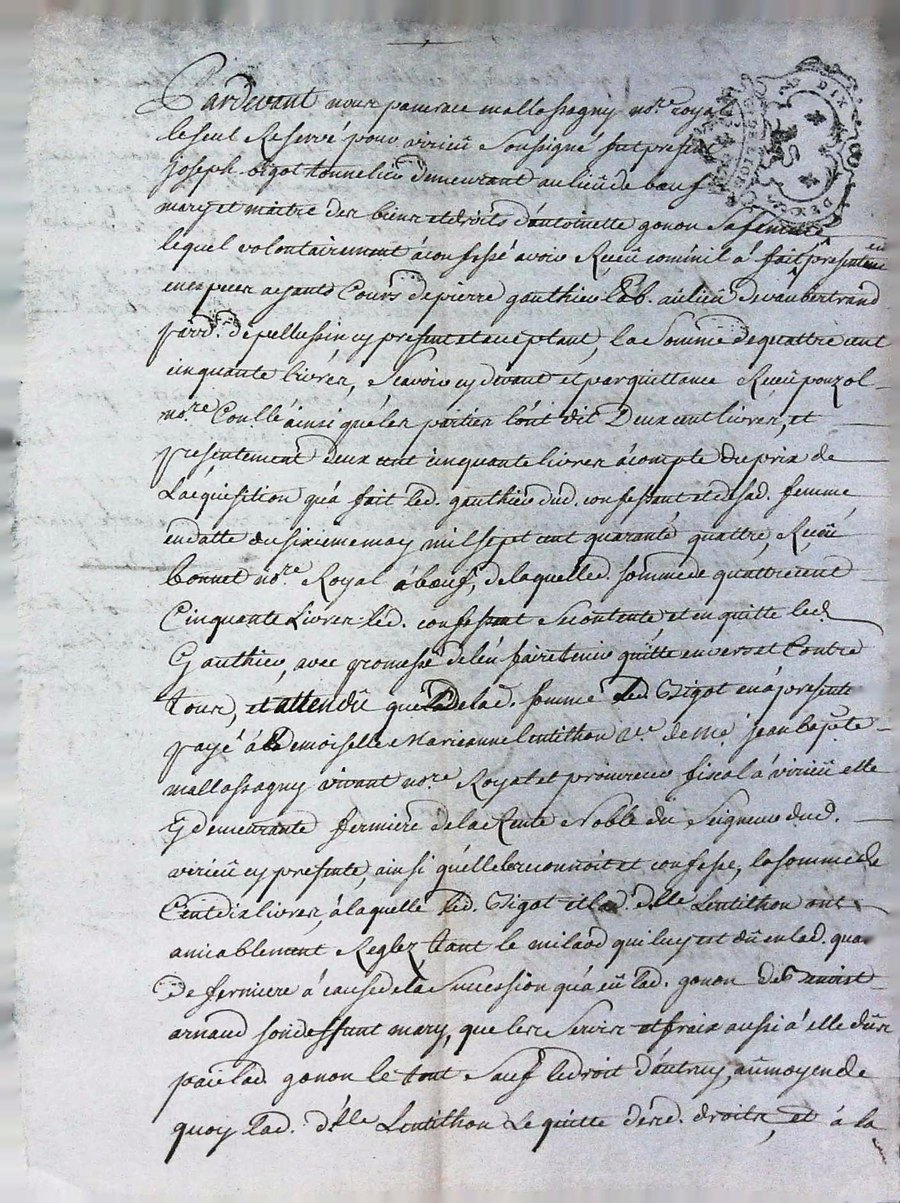 Pardevant nous pancrace mallassagny no.re royal
le seul Reservé pour virieü Soussigné fut present
joseph bigot tonnelier demeurant au lieu de bœuf
mary et maitre des biens et droits d'antoinette gonon sa femme
lequel volontairement à confessé avoir Reçeü comm'il à fait presentem.t
en especes ayants Cours de pierre gauthier lab. au lieu de vaubertrand
parr. de pellussin cy present et acceptant, la Somme de quattre cent
cinquante livres, Scavoir cy devant et par quittance Reçeü pouzol
no.re Coullé ainsi que les parties l'ont dit Deux cent livres, et
presentement deux cent cinquante livres à compte du prix de
L'acquisition qu'à fait led. gauthier dud. confessant et de sad. femme
en datte du sixieme may mil sept cent quarante quattre, Reçeü
bonnet no.re Royal à bœuf, de laquelle d. somme de quattre cent
Cinquante Livres led. confessant se contente et en quitte led.
Gauthier, avec promesse de l'en faire tenir quitte envers et Contre
tous, et attendü que de lad. somme led. Bigot en à presente
payé à Demoiselle Marianne lentithon v.e de me. jean bap.te
mallassagny vivant no.re Royal et procureur fiscal à virieü elle
y demeurante fermiere de la Rente Noble dü Seigneur dud.
virieü cy presente, ainsi qu'elle le reconnoit et confesse, la somme de
Cent dix livres, à laquelle led. Bigot et lad. d.lle Lentithon ont
amicablement Reglez tant le milaod qui luy est dü en lad. qua.
De fermiere à cause de la Succession qu'à eü lad. gonon de benoist
arnaud son deffunt mary, que les Servis et fraix aussi à elle düs
par lad. gonon le tout Sauf le droit d'autruy, au moyen de
quoy lad. d.lle Lentithon le quitte desd. droits, et à la
DIX DEN